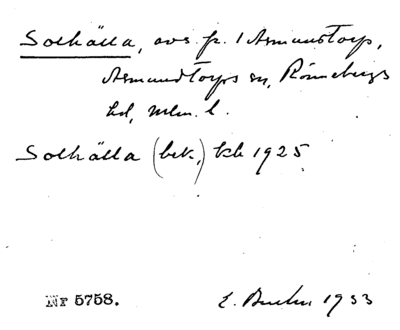 Solhälla, avs. fr. 1 Asmundtorp,
Asmundtorps sn, Rönnebergs
hd, Mlm. l.
Solhälla (bek.) kb 1925
Nr 5758.
E. 1933